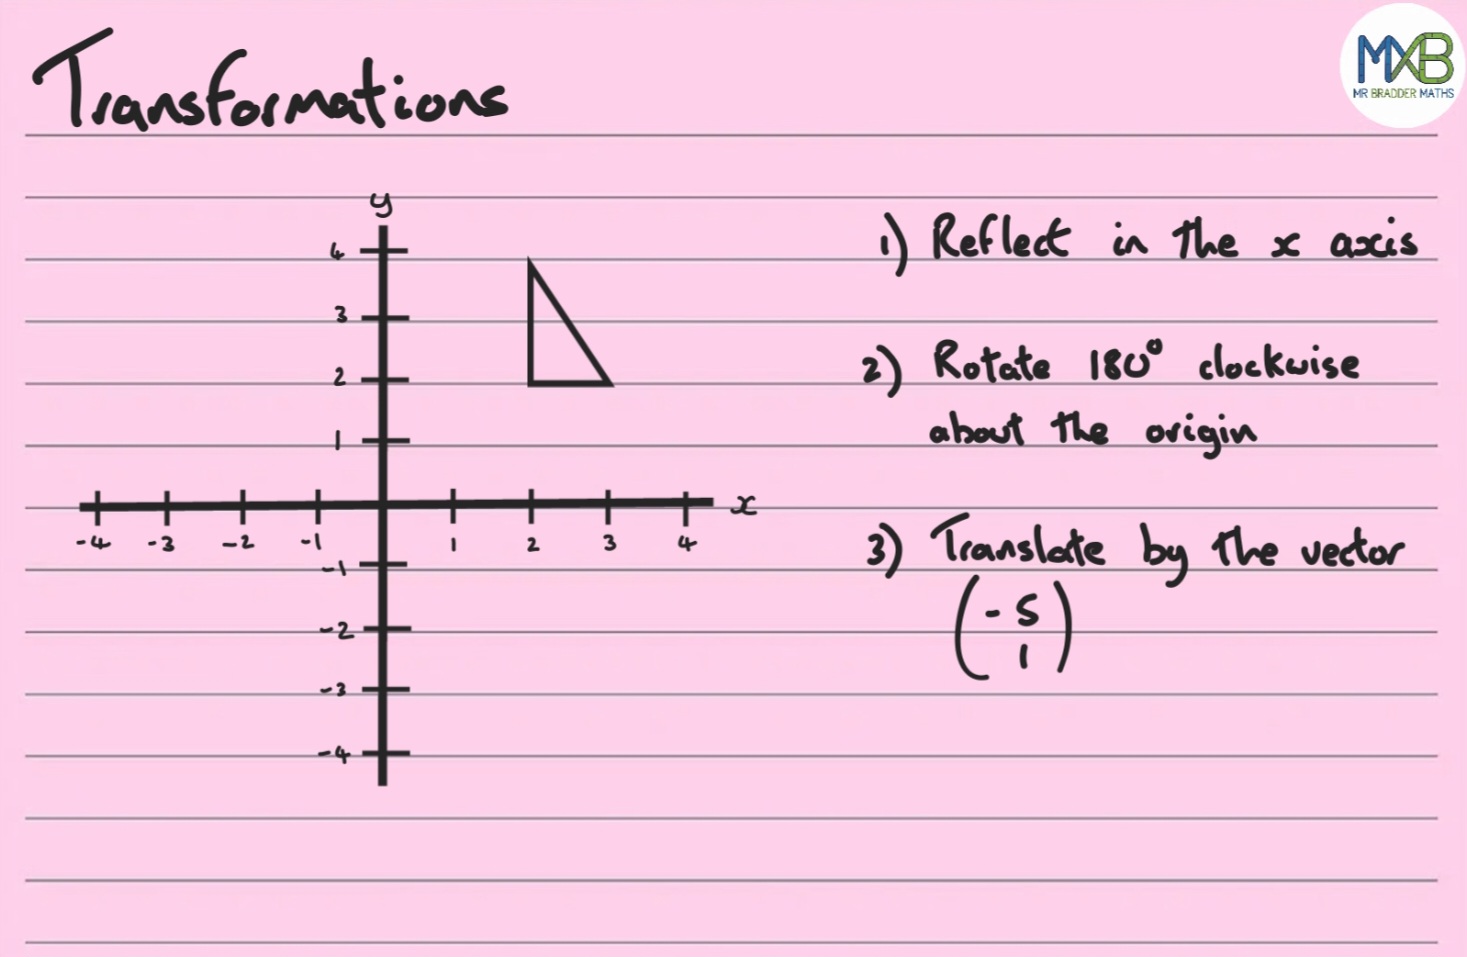 Transformations
MXB
MR BRADDER MATHS
y
4
3
2
1
x
-4 -3 -2 -1 1 2 3 4
-1
-2
-3
-4
1) Reflect in the x axis
2) Rotate 180° clockwise
about the origin
3) Translate by the vector
(-5
1)